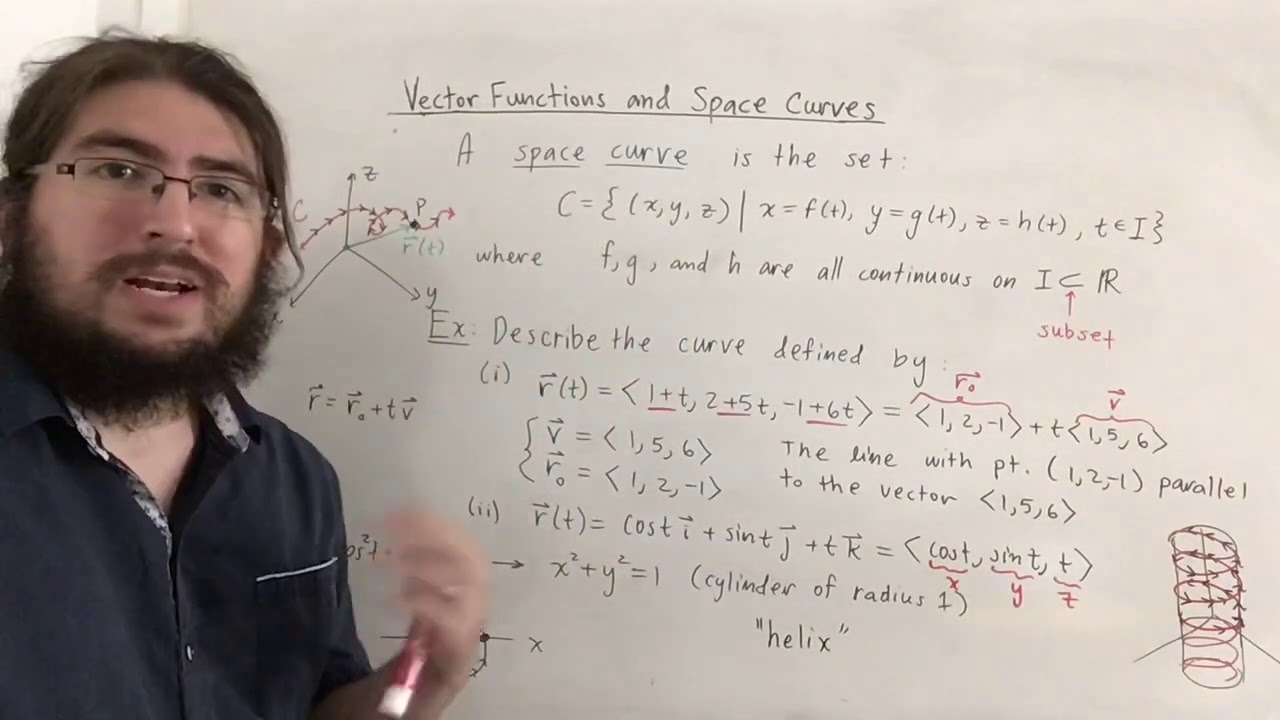 Vector Functions and Space Curves
A space curve is the set:
C = { (x, y, z) | x = f(t), y = g(t), z = h(t), t ∈ I }
where f, g, and h are all continuous on I ⊂ ℝ
subset
z
C
P
r⃗(t)
y
x
Ex: Describe the curve defined by:
(i) r⃗(t) = ⟨1+t, 2+5t, -1+6t⟩ = ⟨1, 2, -1⟩ + t⟨1, 5, 6⟩
r⃗₀ v⃗
r⃗ = r⃗₀ + t v⃗
{ v⃗ = ⟨1, 5, 6⟩
r⃗₀ = ⟨1, 2, -1⟩
The line with pt. (1, 2, -1) parallel
to the vector ⟨1, 5, 6⟩
(ii) r⃗(t) = cost i⃗ + sint j⃗ + t k⃗ = ⟨cost, sint, t⟩
x y z
→ x² + y² = 1 (cylinder of radius 1)
"helix"
x